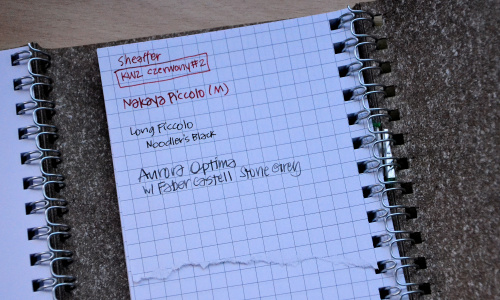 Sheaffer
KWZ czerwony #2
Nakaya Piccolo (M)
Long Piccolo
Noodler's Black
Aurora Optima
w/ Faber Castell Stone Grey